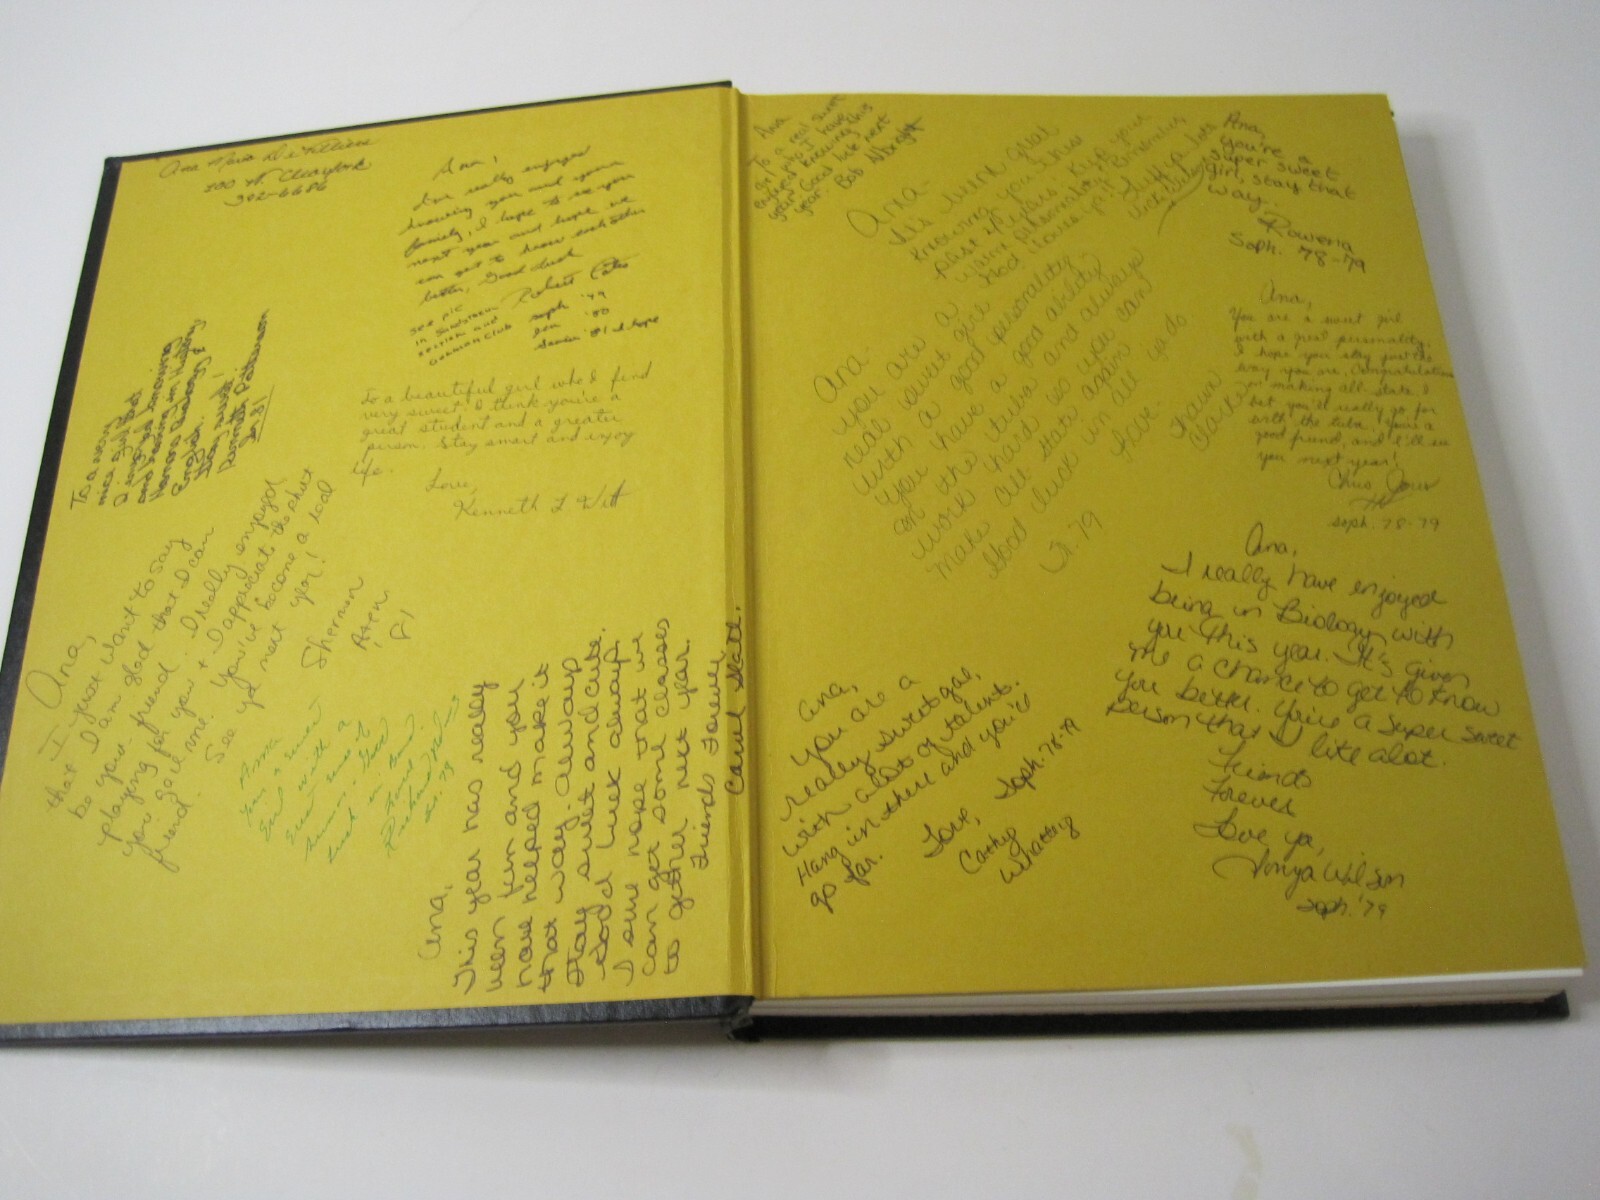 Ana Maria
392-6686
Ana,
I've really enjoyed
knowing you and your
family, I hope to see you
next year and hope we
can get to know each other
better, Good luck
see pic
in
section and
German Club
Robert
soph '79
Jun '80
Senior '81 I hope
To a very
nice girl that
I enjoyed knowing
and being in
Honors Biology &
English.
Stay sweet,
Kenneth Patterson
Jr. 81
To a beautiful girl who I find
very sweet. I think you're a
great student and a greater
person. Stay smart and enjoy
life.
Love,
Kenneth L Witt
Ana,
I just want to say
that I am glad that I can
be your friend. I really enjoyed
playing for you & I appreciate the
you gave me. You've become a real
friend. See ya next year!
Sherman
Aten
81
with a
Good
luck in band.
Richard
79
Ana,
This year has really
been fun and you
have helped make it
that way. Always
stay sweet and cute.
Good luck always.
I sure hope that we
can get some classes
together next year.
Friends Forever
Carol
Ana
To a real sweet
girl who I have
enjoyed knowing this
year. Good luck next
year
Bob Albright
Ana-
It's been great
knowing you this
past 2 years. Keep your
same personality.
God loves ya!!
Ana,
you're a
super sweet
girl, stay that
way.
Rowena
Soph. 78-79
Ana-
You are a
real sweet girl
with a good personality.
You have a good ability
on the tuba and always
work hard so you can
make all state again
Good luck in all ya do
Love,
Shawn
Clarke
Jr. 79
Ana,
You are a sweet girl
with a great personality,
I hope you stay just the
way you are. Congratulations
on making all-state. I
bet you'll really go for
with the tuba. You're a
good friend, and I'll see
you next year!
Chris
Soph. 78-79
Ana,
I really have enjoyed
being in Biology with
you this year. It's given
me a chance to get to know
you better. You're a super sweet
person that I like alot.
Friends
Forever
Love ya,
Tonya Wilson
Soph. '79
Ana,
You are a
really sweet gal,
with alot of talent.
Hang in there and you'll
go far.
Love, Soph. 78-79
Cathy
Whatting